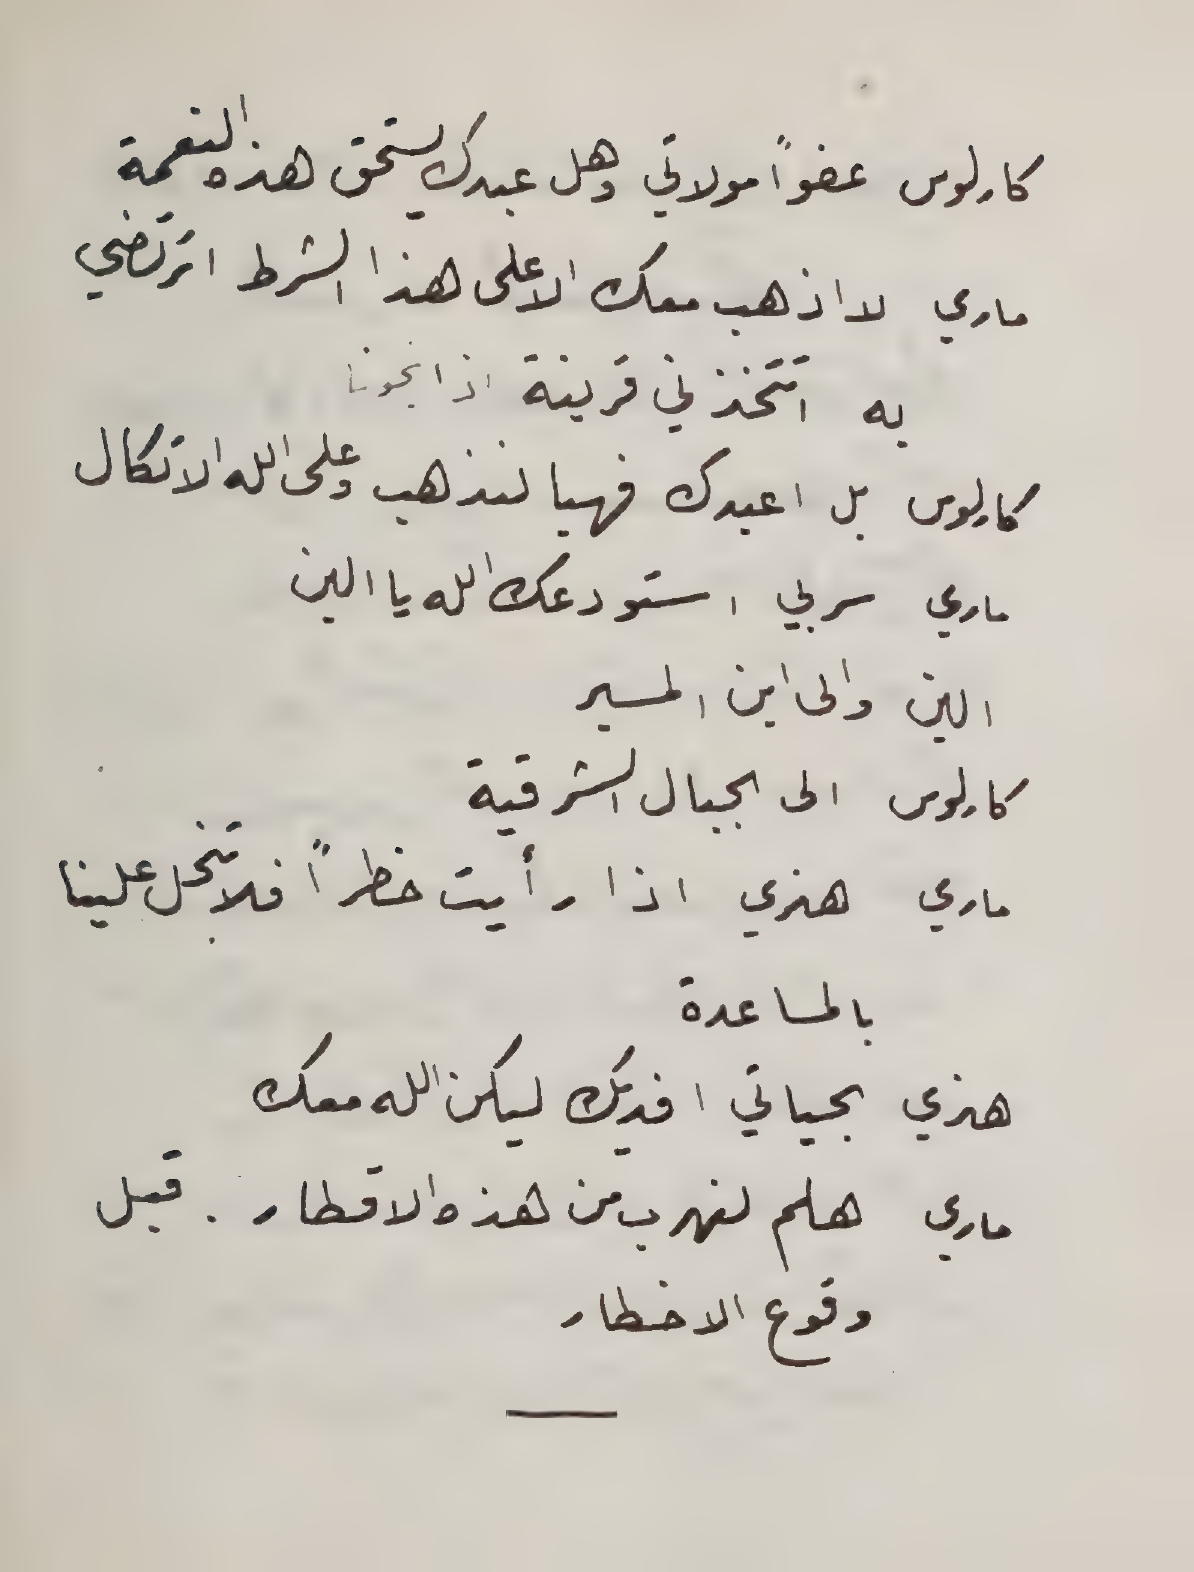 كارلوس عفواً مولاتي وهل عبدك يستحق هذه النعمة
ماري لا اذهب معك الا على هذا الشرط اترتضي
به اتتخذني قرينة اذا نجونا
كارلوس بل اعبدك فهيا لنذهب وعلى الله الاتكال
ماري سر بي استودعك الله يا الين
الين والى اين المسير
كارلوس الى الجبال الشرقية
ماري هنري اذا رأيت خطراً فلا تبخل علينا
بالمساعدة
هنري بحياتي افديك ليكن الله معك
ماري هلم لنهرب من هذه الاقطار . قبل
وقوع الاخطار